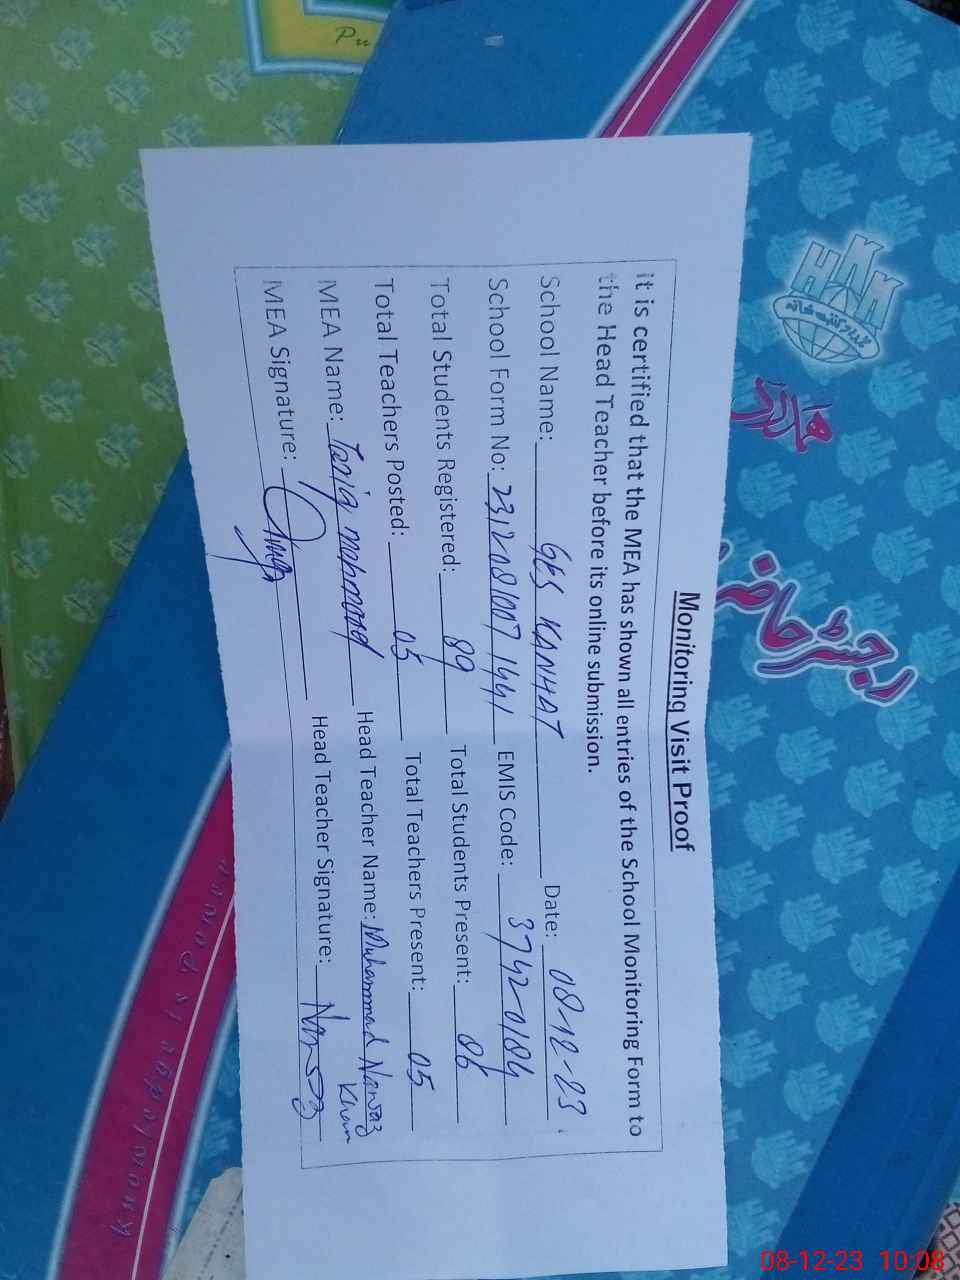 Monitoring Visit Proof
it is certified that the MEA has shown all entries of the School Monitoring Form to
the Head Teacher before its online submission.
School Name: GES KANHAT Date: 08-12-23.
School Form No: 23120810071441 EMIS Code: 37420184
Total Students Registered: 89 Total Students Present: 86
Total Teachers Posted: 05 Total Teachers Present: 05
MEA Name: Tariq mahmood Head Teacher Name: Muhammad Nawaz
Khan
MEA Signature: Head Teacher Signature:
رجسٹر حاضری
08-12-23 10:08